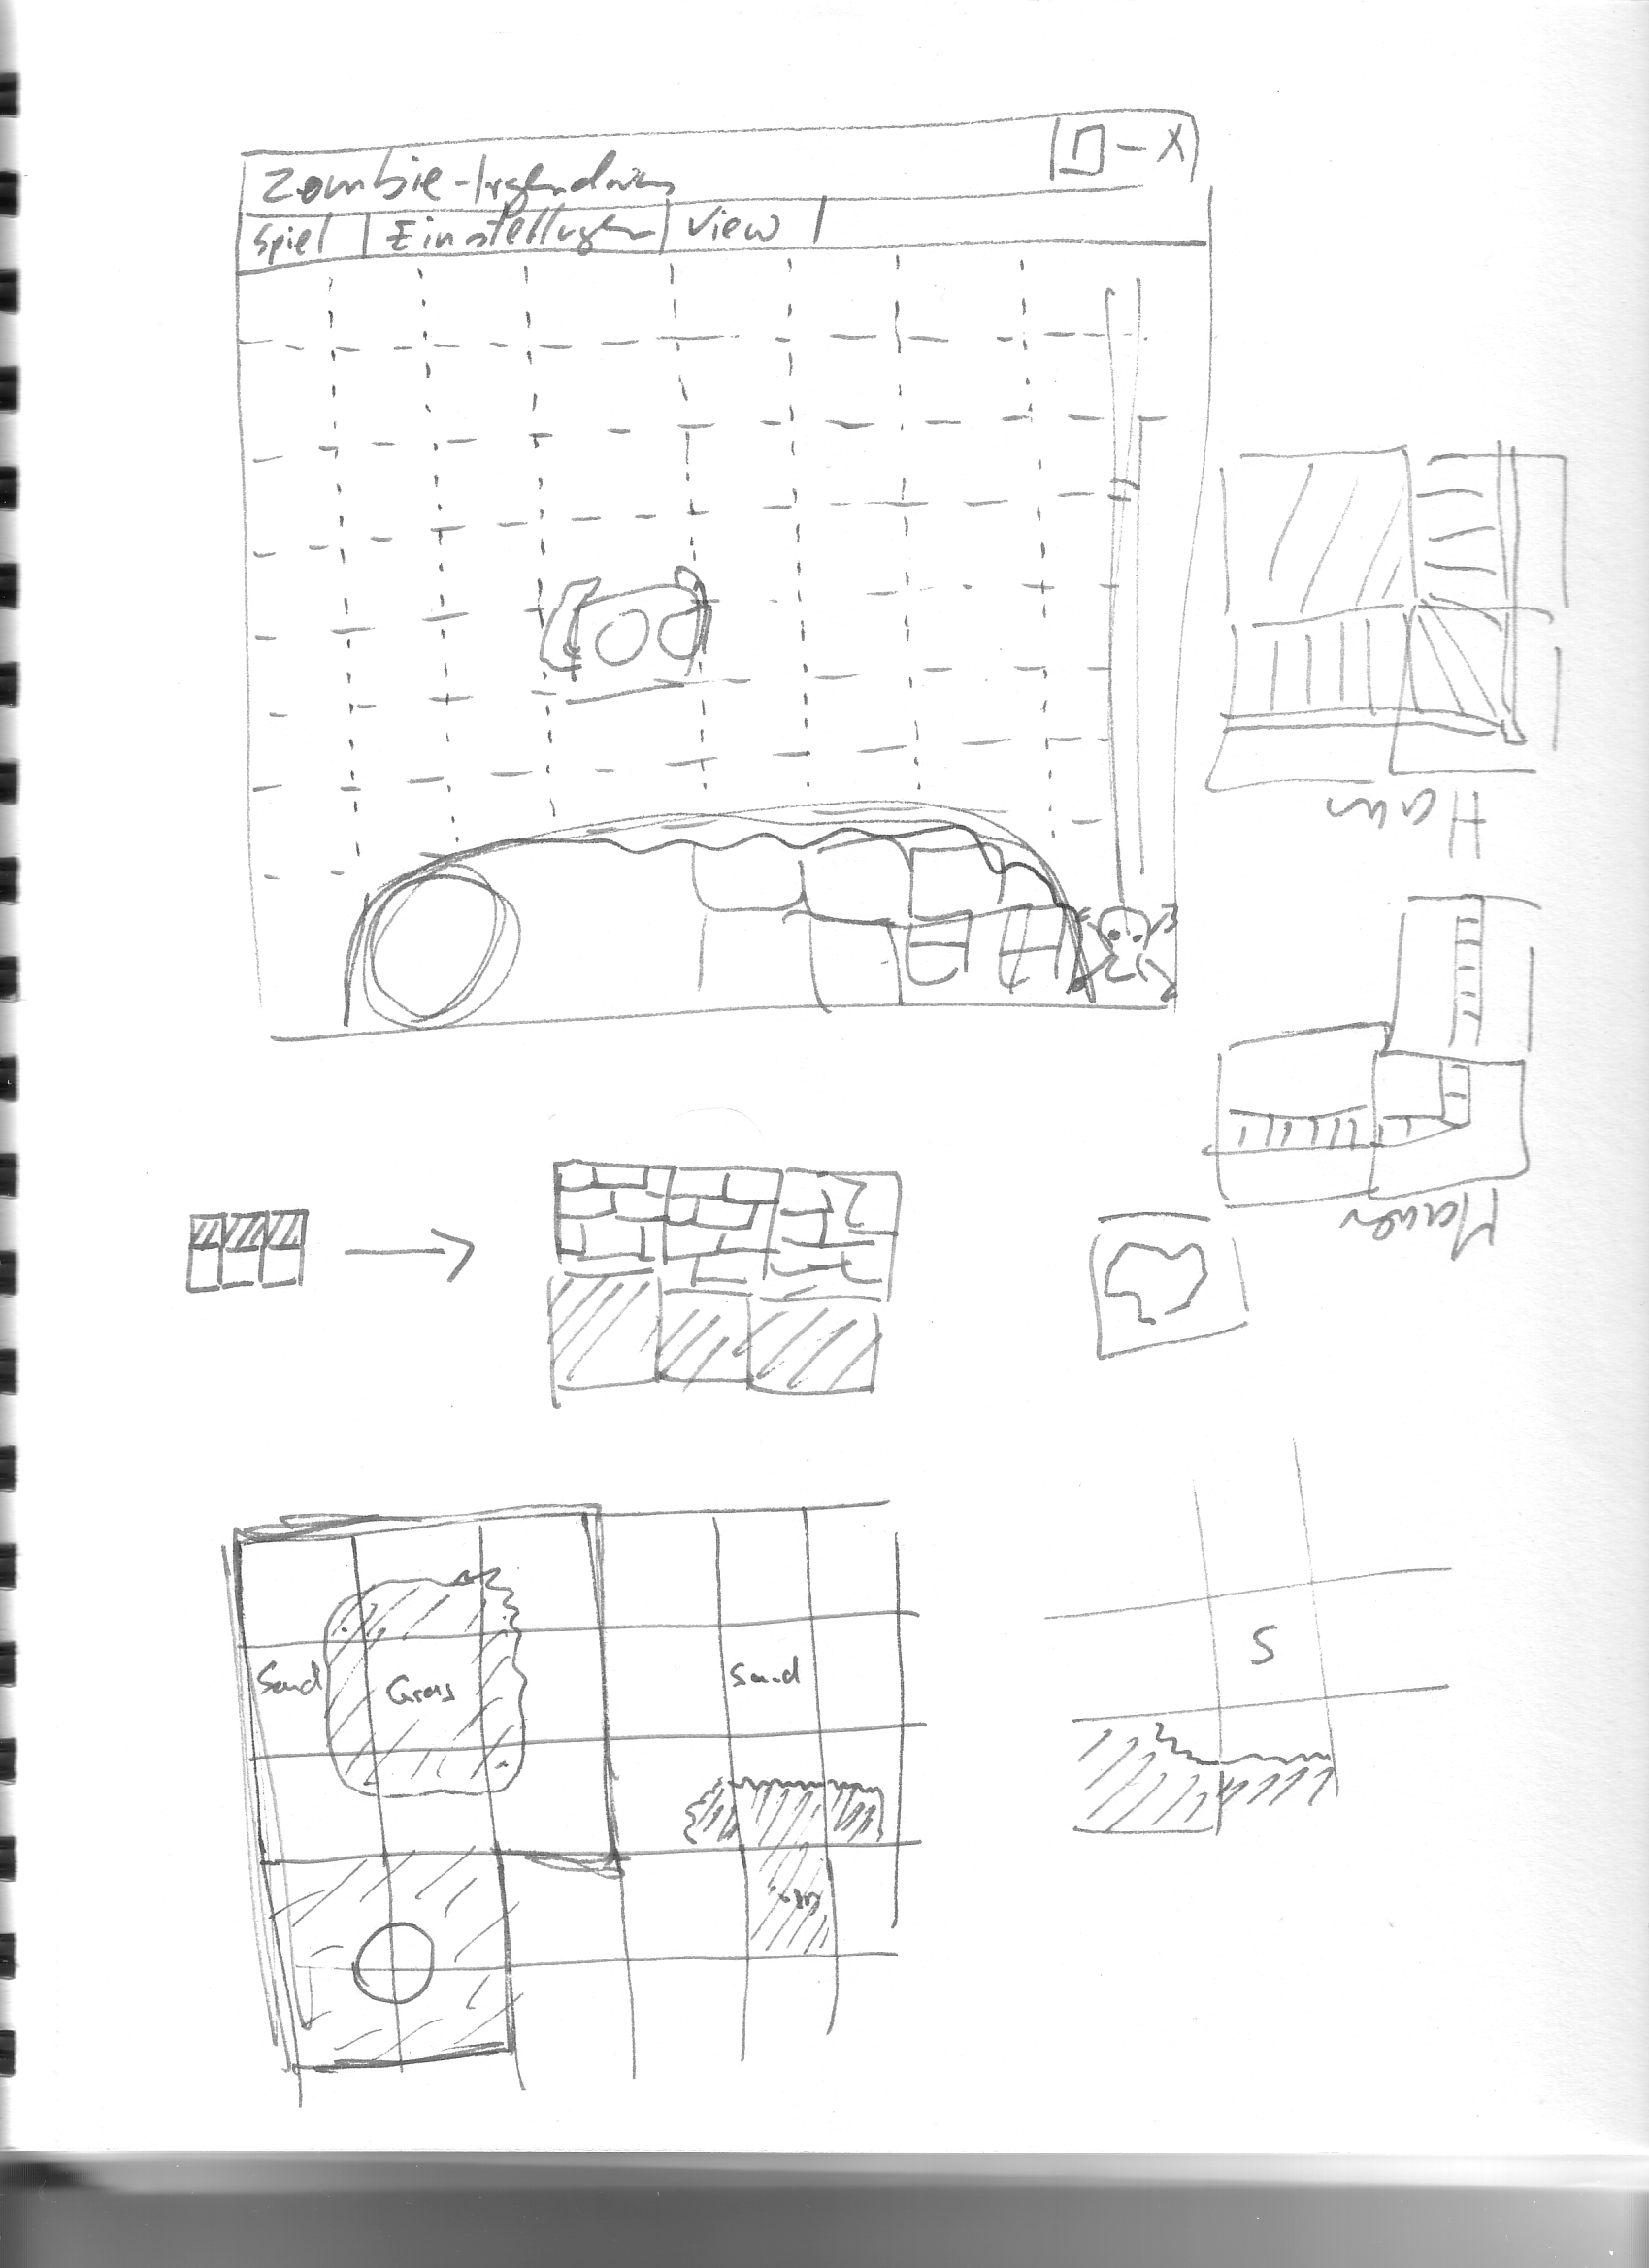 Zombie-Irgendwas
Spiel Einstellungen View
Haus
Mauer
Sand Gras Sand
S